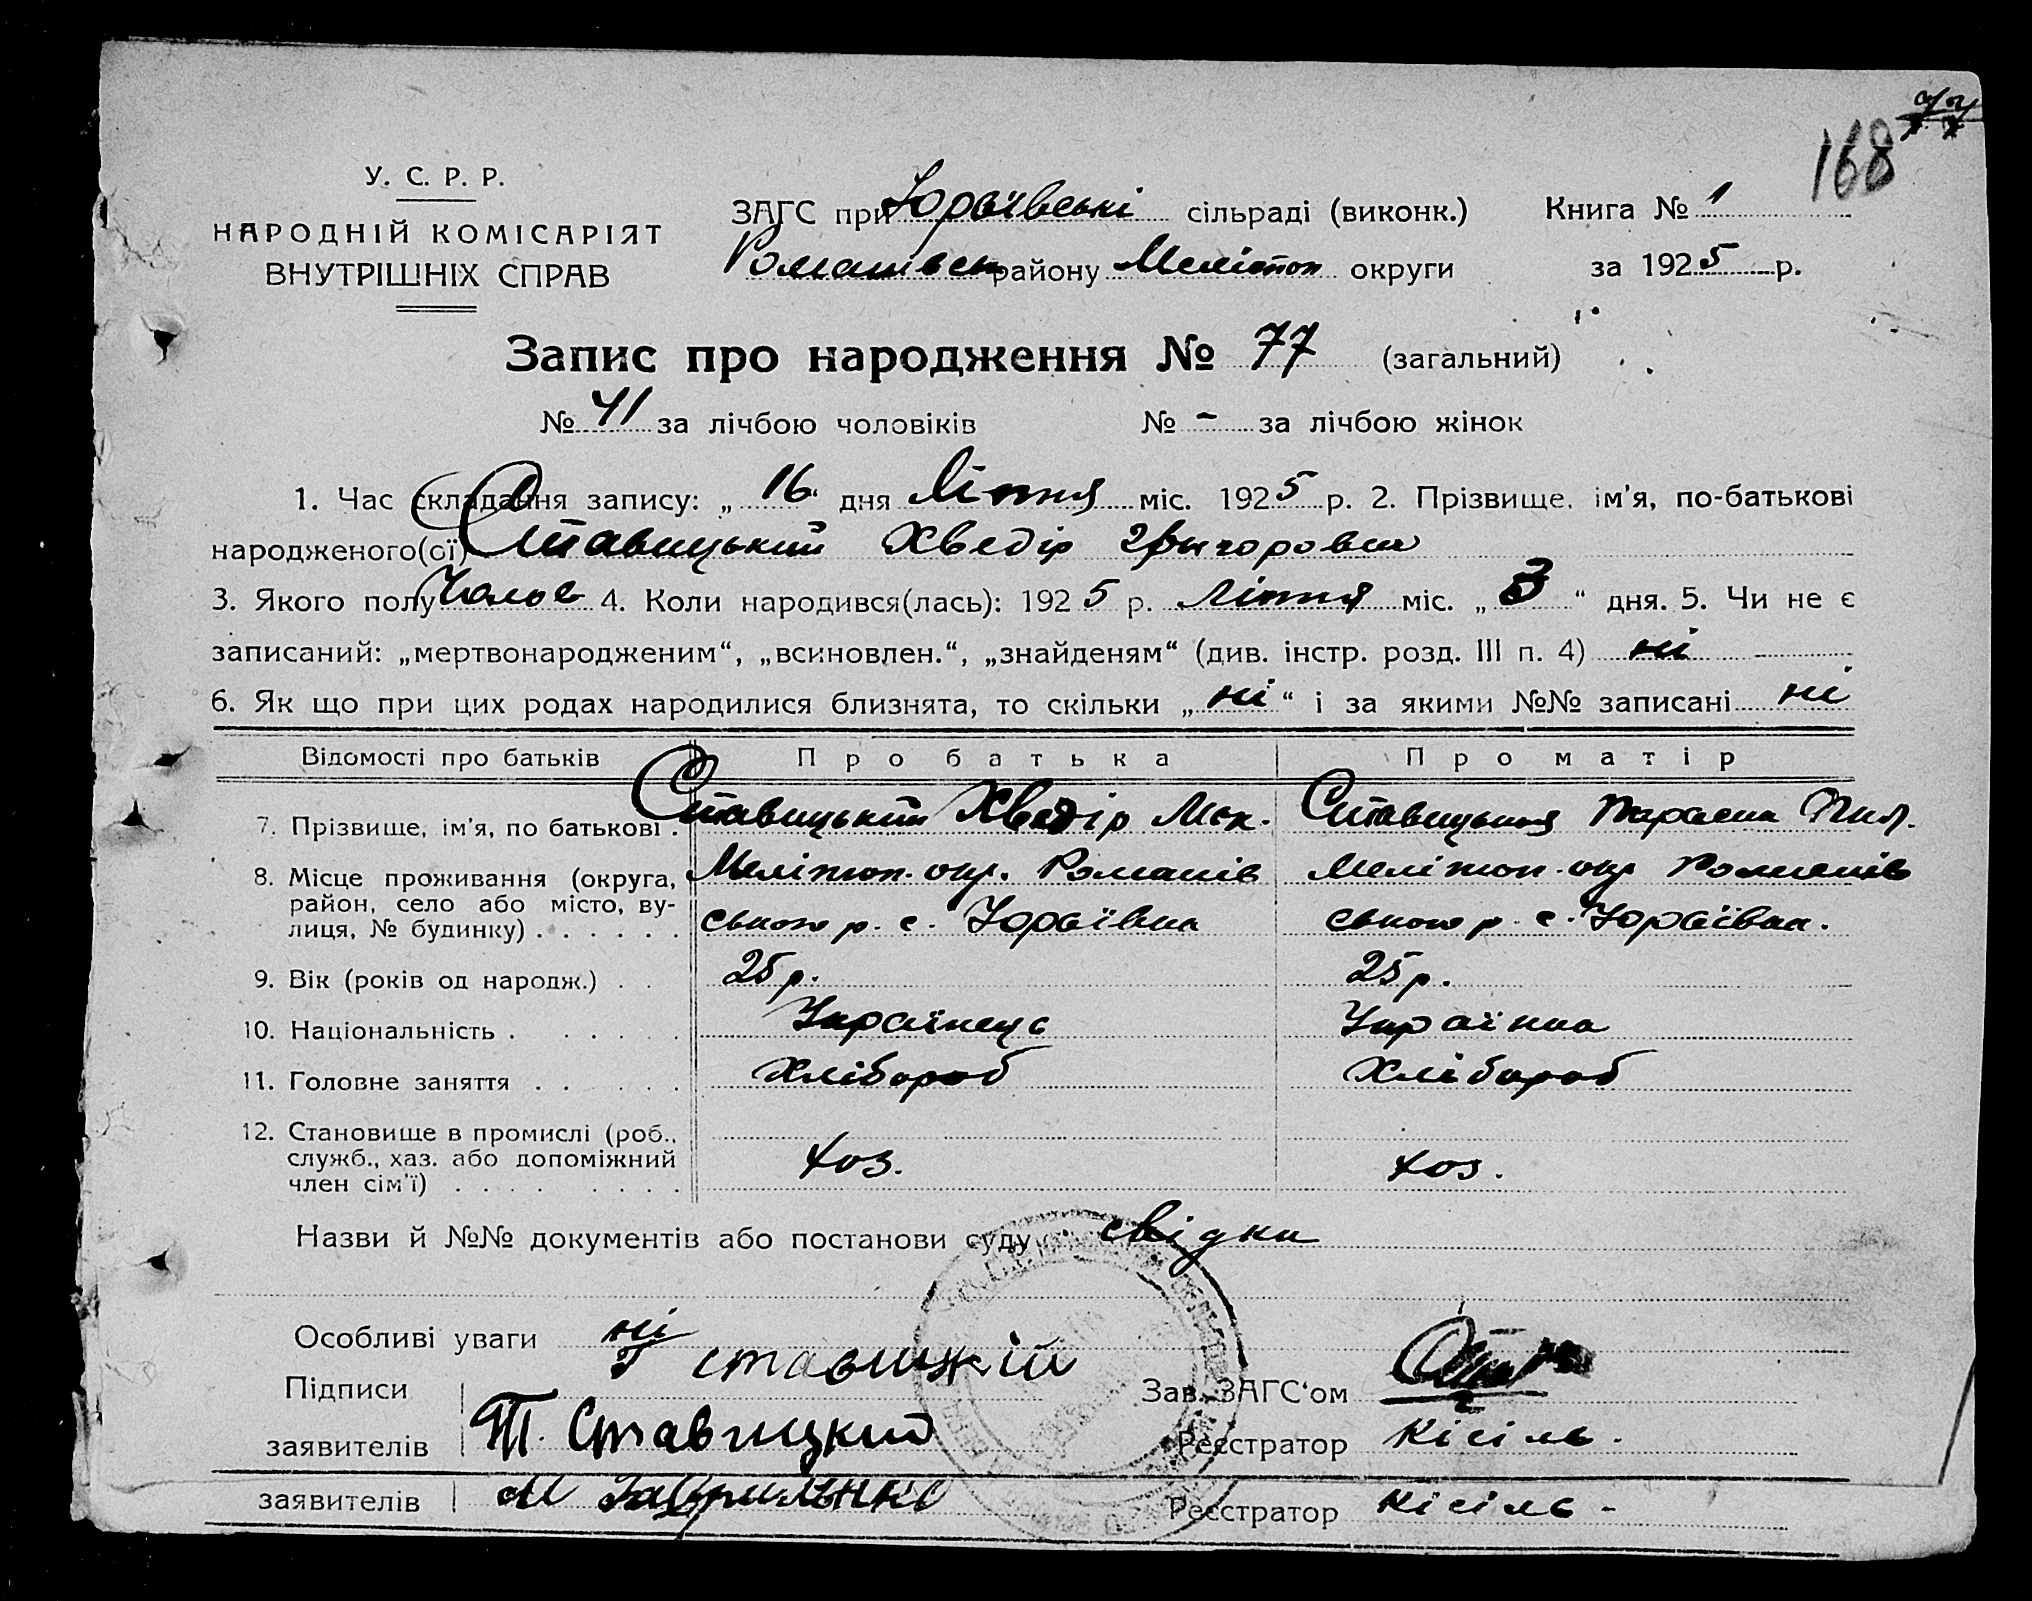 77
168
У. С. Р. Р.
НАРОДНІЙ КОМІСАРІЯТ
ВНУТРІШНІХ СПРАВ
ЗАГС при Юраївські сільраді (виконк.) Книга № 1
Романівськ району Мелітоп округи за 1925 р.
Запис про народження № 77 (загальний)
№ 41 за лічбою чоловіків № - за лічбою жінок
1. Час складання запису: „ 16 дня Ліпня міс. 1925 р. 2. Прізвище, ім'я, по-батькові
народженого(ої) Ставицький Хведір
3. Якого полу Чолов 4. Коли народився(лась): 1925 р. Ліпня міс. „ 3 “ дня. 5. Чи не є
записаний: „мертвонародженим“, „всиновлен.“, „знайденям“ (див. інстр. розд. III п. 4) ні
6. Як що при цих родах народилися близнята, то скільки „ ні “ і за якими №№ записані ні
Відомості про батьків Про батька Про матір
7. Прізвище, ім'я, по батькові . Ставицький Хведір Ставицькая Параска Пил.
8. Місце проживання (округа, Мелітоп. окр. Романів Мелітоп. окр Романів
район, село або місто, ву- ського р. с. Юраївка ського р с. Юраївка.
лиця, № будинку) . . . . . .
9. Вік (років од народж.) . . 25 р. 25 р.
10. Національність . . . . . . Українець Українка
11. Головне заняття . . . . . Хлібороб Хлібороб
12. Становище в промислі (роб.,
служб., хаз. або допоміжний хоз. хоз.
член сім'ї) . . . . . . . . .
Назви й №№ документів або постанови суду свідки
Особливі уваги ні
Г ставицкій
Підписи Зав. ЗАГС'ом
заявителів Т. Ставицкий Реєстратор Кісіль.
заявителів М Гаврильнко Реєстратор Кісіль -